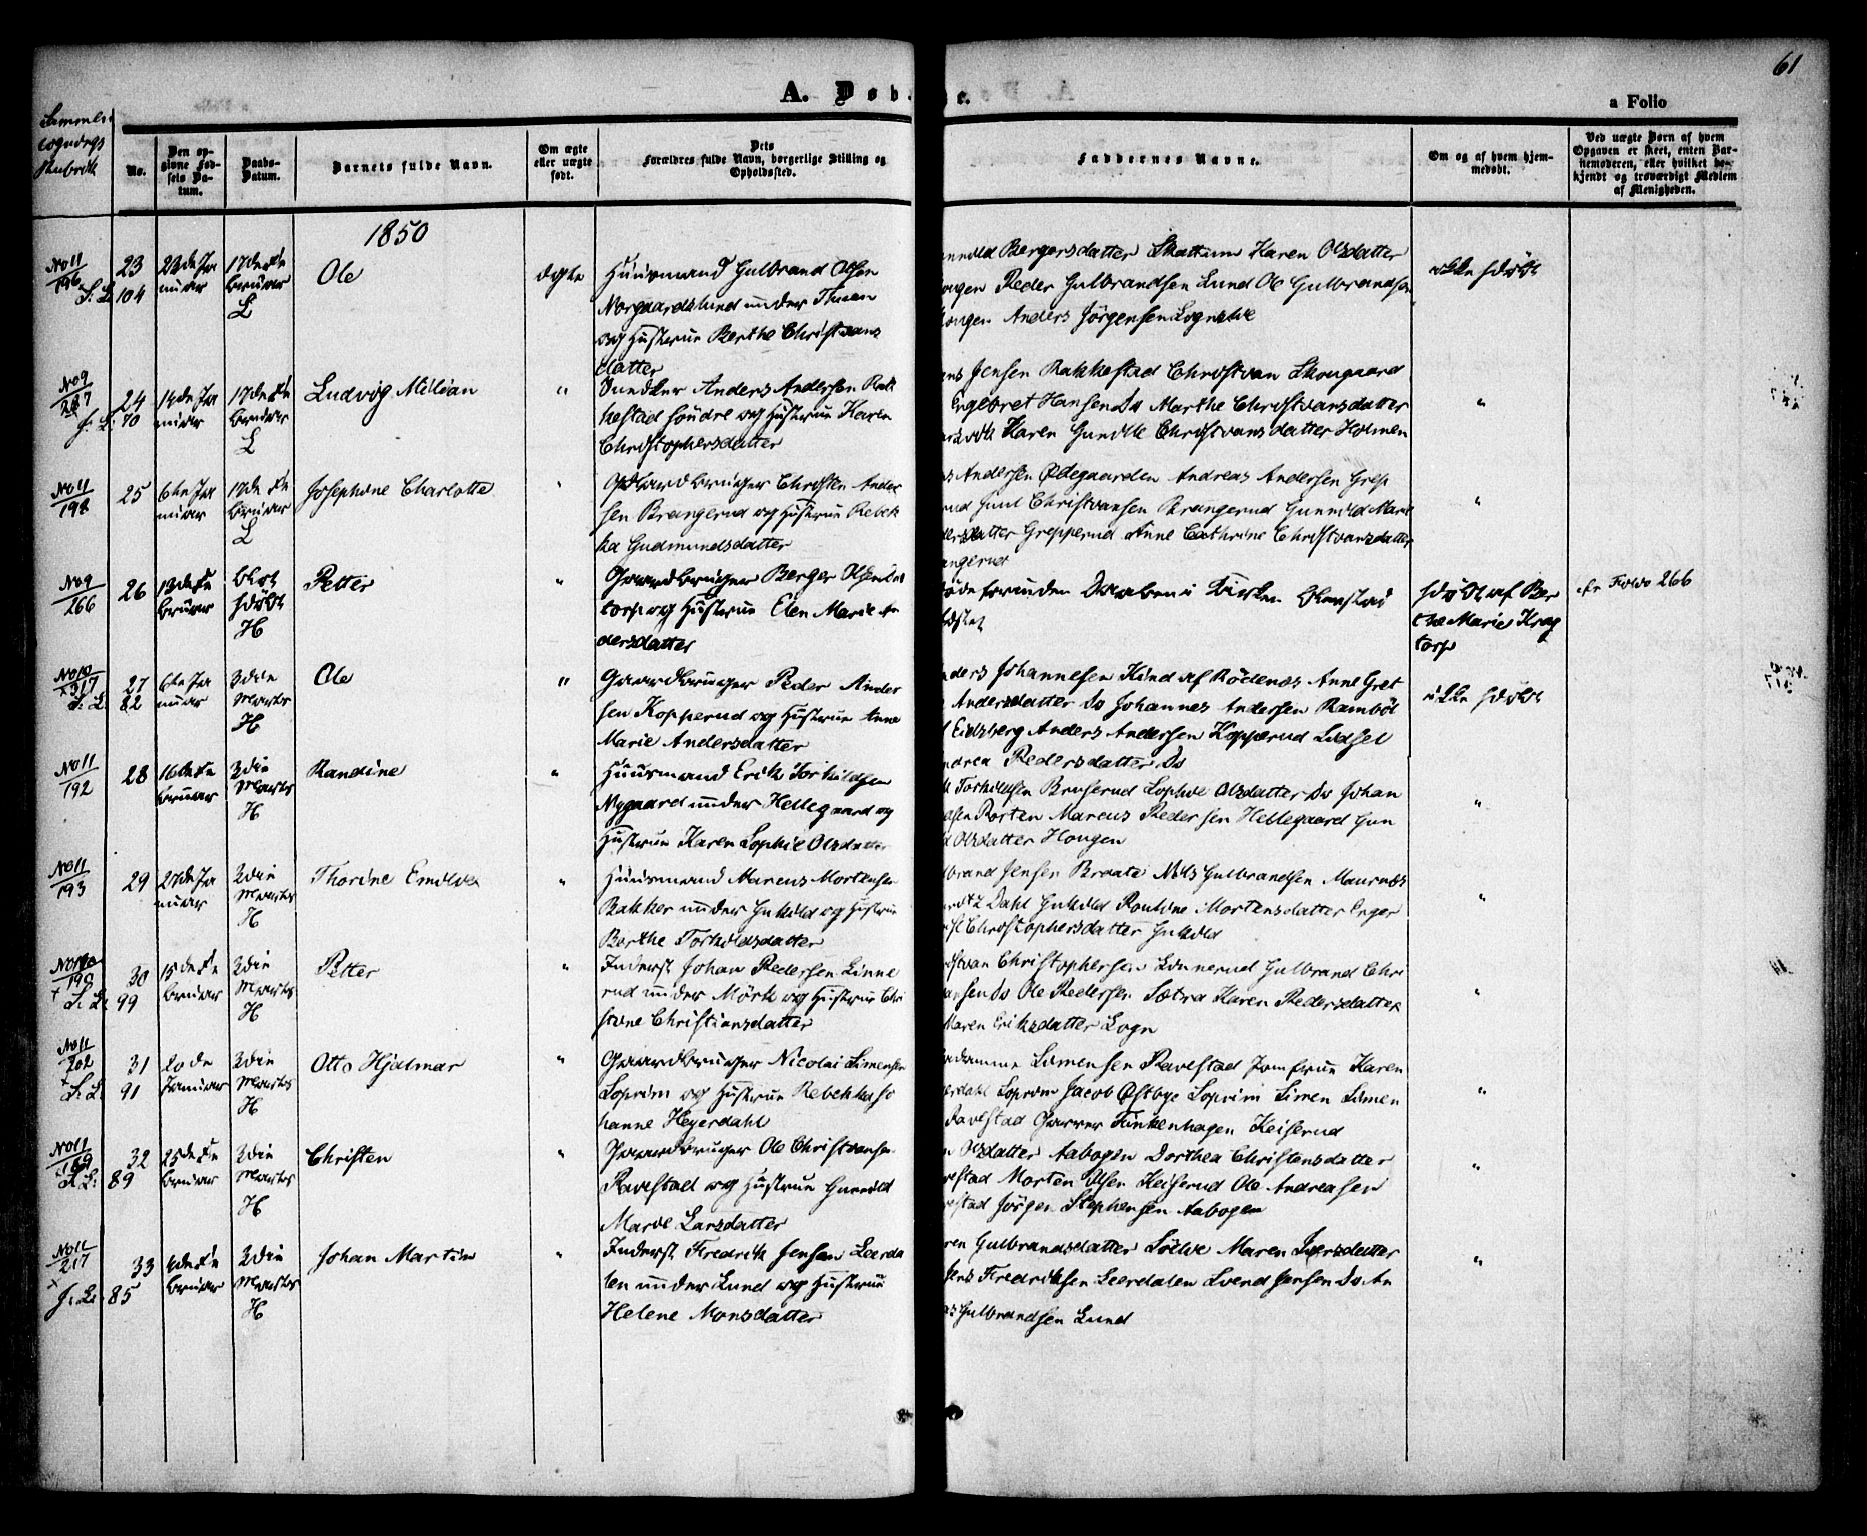 61
A. Døb
e.
a Folio
No.
Den op-
givne Fød-
sels Da-
tum.
Daabs-
Datum.
Barnets fulde Navn.
Om ægte
eller uægte
født.
Dets
Forældres fulde Navn, borgerlige Stilling og
Opholdssted.
Faddernes Navne.
Om og af hvem hjem-
medøbt.
Ved uægte Børn af hvem
Opgaven er skeet, enten Bar-
nemoderen, eller hvilket be-
kjendt og troværdigt Medlem
af Menigheden.
1850
No 11
196
S: L: 104
23
22de Ja
nuar
17de Fe
bruar
L
Ole
ægte
Huusmand Gulbrand Olsen
Norgaardslund under Thuen
og Hustrue Berthe Christians
datter
Bergersdatter Skattum Karen Olsdatter
ougen Peder Gulbrandsen Lund Ole Gulbrandsen
ougen Anders Jörgensen
ikke hdöbt
No 9
J: L: 70
24
14de Ja
nuar
17de Fe
bruar
L
Ludvig Milian
"
Anders Andersen Rak
kestad söndre og Hustrue Karen
Christophersdatter
ns Jensen Rakkestad Christian Skougaard
Engebret Hansen Ds Marthe Christiansdatter
Karen Gunille Christiansdatter Holmen
"
No 11
198
25
6te Ja
nuar
17de Fe
bruar
L
Josephine Charlotte
"
Gaardbruger Christen Ander
sen Brangerud og Hustrue Rebek
ka Gudmundsdatter
s Andersen Ödegaarden Andreas Andersen Grep
rud Juul Christiansen Brangerud Gunnild Marie
dersdatter Grepperud Anne Cathrine Christiansdatter
angerud
"
No 9
266
26
13de Fe
bruar
hdöbt
H
Petter
"
Gaardbruger Berger Olsen
torp og Hustrue Elen Marie An
dersdatter
hdöbt af Ber
the Marie Krag
torp
cfr Folio 266
No 10
317
S: L: 82
27
6te Ja
nuar
3die
Marts
H
Ole
"
Gaardbruger Peder Ander
sen Kopperud og Hustrue Anne
Marie Andersdatter
nders Johannesen Kind af Rödenes Anne Gret
Andersdatter Ds Johannes Andersen Ramböl
Eidsberg Anders Andersen Kopperud
ndrea Pedersdatter Ds
ikke hdöbt
No 11
192
28
16de Fe
bruar
3die
Marts
H
Randine
"
Huusmand Erik Torkildsen
Nygaard under Hellegaard og
Hustrue Karen Sophie Olsdatter
Torkildsen Bruserud Sophie Olsdatter Ds Johan
Porten Marcus Pedersen Hellegaard Gun
Olsdatter Hougen
"
No 11
193
29
27de Ja
nuar
3die
Marts
H
Thorine Emilie
"
Huusmand Marcus Mortensen
Bakker under Gukild og Hustrue
Berthe Torkildsdatter
lbrand Jensen Braate Nils Gulbrandsen Maurnæs
Dahl Gukild Pouline Mortensdatter Enger
Christophersdatter Gukild
"
190
S: L: 99
30
15de Fe
bruar
3die
Marts
H
Petter
"
Inderst Johan Pedersen Linne
rud under Mörk og Hustrue Chri
stine Christiansdatter
istian Christophersen Linnerud Gulbrand Chri
ansen Ds Ole Pedersen Sætra Karen Pedersdatter
Maren Eriksdatter Sogn
"
No 11
202
S: L: 91
31
20de
Januar
3die
Marts
H
Otto Hjalmar
"
Gaardbruger Nicolai Simensen
Soprim og Hustrue Rebekka Jo
hanne Heyerdahl
Madamme Simensen Ravestad Jomfrue Karen
erdahl Soprim Jacob Östbye Soprim Simen Simen
Ravestad Garver Finkenhagen Keiserud
"
No 11
S: L: 89
32
25de Fe
bruar
3die
Marts
H
Christen
"
Gaardbruger Ole Christiansen
Ravestad og Hustrue Gunnild
Marie Larsdatter
n Olsdatter Aabogen Dorthea Christensdatter
vestad Morten Olsen Keiserud Ole Andreasen
vestad Jörgen Stephensen Aabogen
"
No 11
217
J: L: 85
33
4de Fe
bruar
3die
Marts
H
Johan Martin
"
Inderst Fredrik Jensen Leerda
len under Lund og Hustrue
Helene Monsdatter
ren Gulbrandsdatter Maren Iversdatter
Jens Fredriksen Leerdalen Svend Jensen Ds An
as Gulbrandsen Lund
"